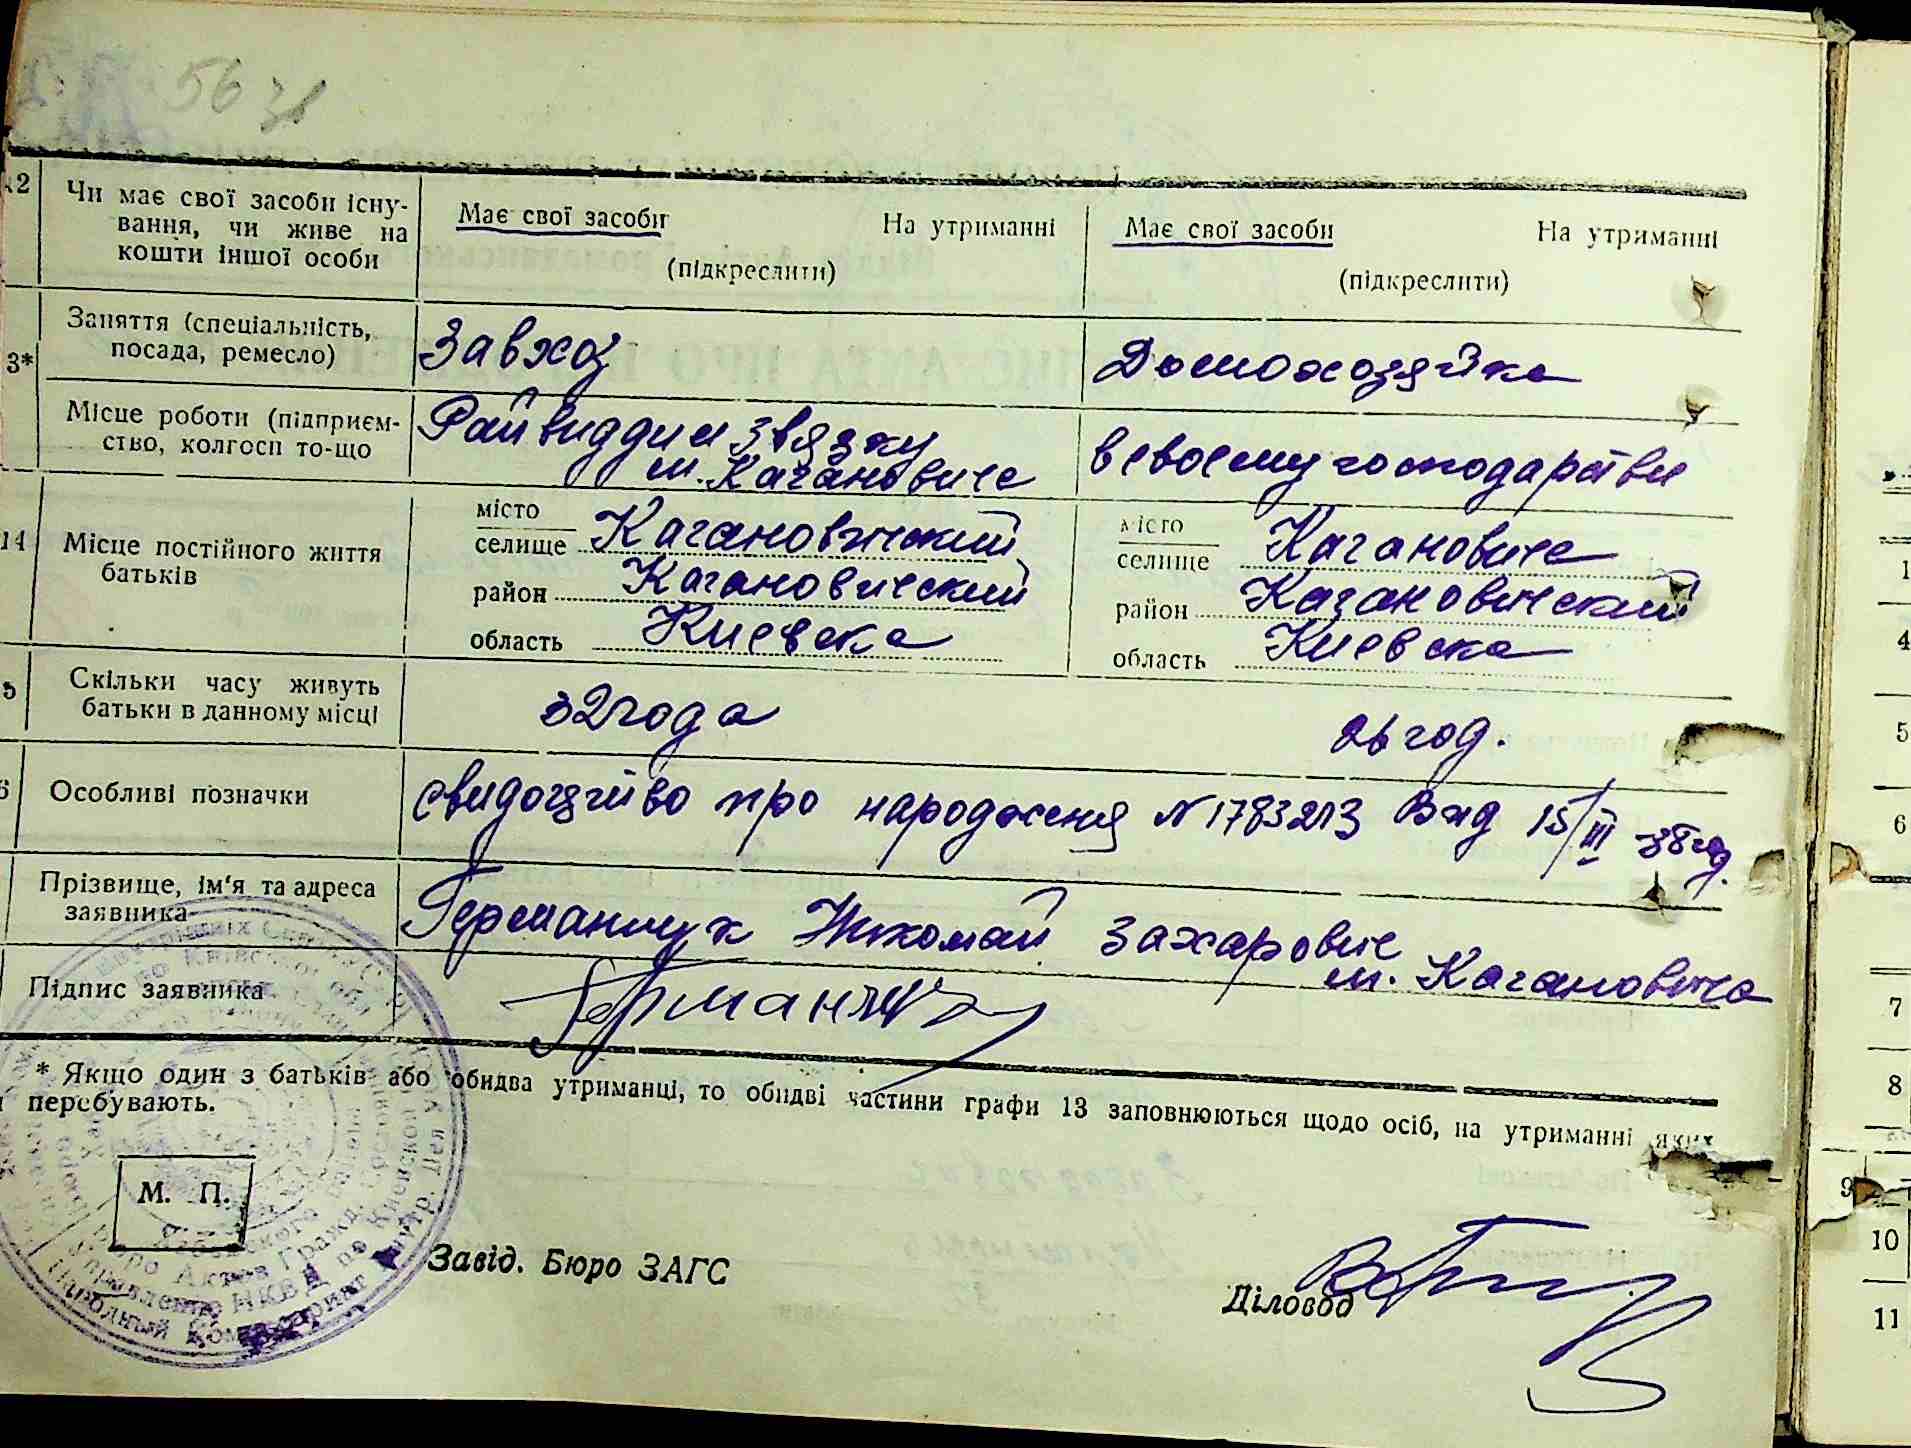 56 зв
12 Чи має свої засоби існу-
вання, чи живе на
кошти іншої особи
Має свої засоби На утриманні
(підкреслити)
Має свої засоби На утриманні
(підкреслити)
3* Заняття (спеціальність,
посада, ремесло)
Завхоз
Домохозяйка
Місце роботи (підприєм-
ство, колгосп то-що
Райвиддил звязку
м. Кагановиче
в своему господарстви
14 Місце постійного життя
батьків
місто
селище Кагановический
район Кагановический
область Киевска
місто
селище Кагановиче
район Кагановический
область Киевска
5 Скільки часу живуть
батьки в данному місці
32 года
26 год.
6 Особливі позначки
свидоцтво про народження № 1783213 Вид 15/III -38 год.
Прізвище, ім'я та адреса
заявника
Германчук Николай Захарович
м. Кагановича
Підпис заявника
Германчук
* Якщо один з батьків або обидва утриманці, то обидві частини графи 13 заповнюються щодо осіб, на утриманні яких
перебувають.
М. П.
Завід. Бюро ЗАГС
Діловод
1
4
5
6
7
8
9
10
11